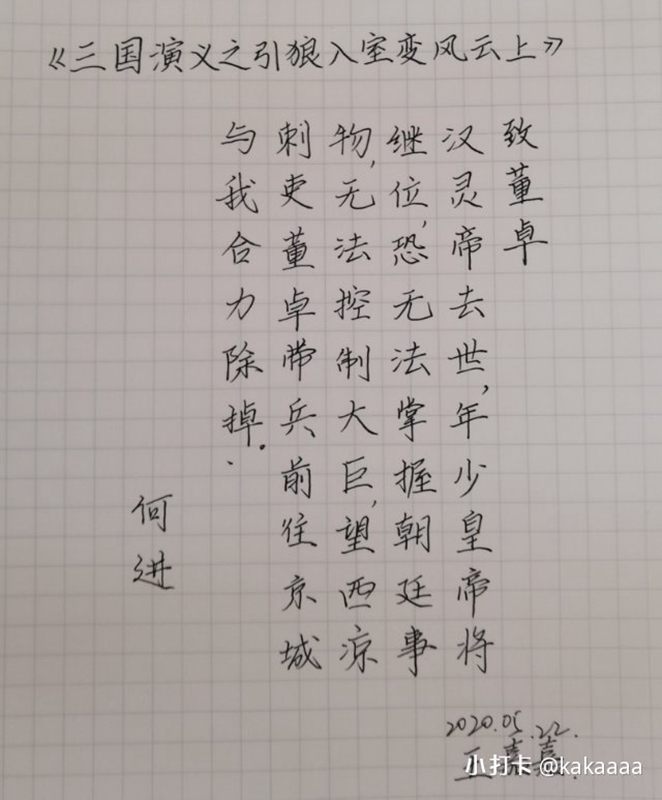 《三国演义之引狼入室变风云上》
致董卓
汉灵帝去世，年少皇帝将
继位，恐无法掌握朝廷事
物，无法控制大巨，望西凉
刺吏董卓带兵前往京城
与我合力除掉.
何进
2020.05.22.
王嘉
小打卡 @kakaaaa